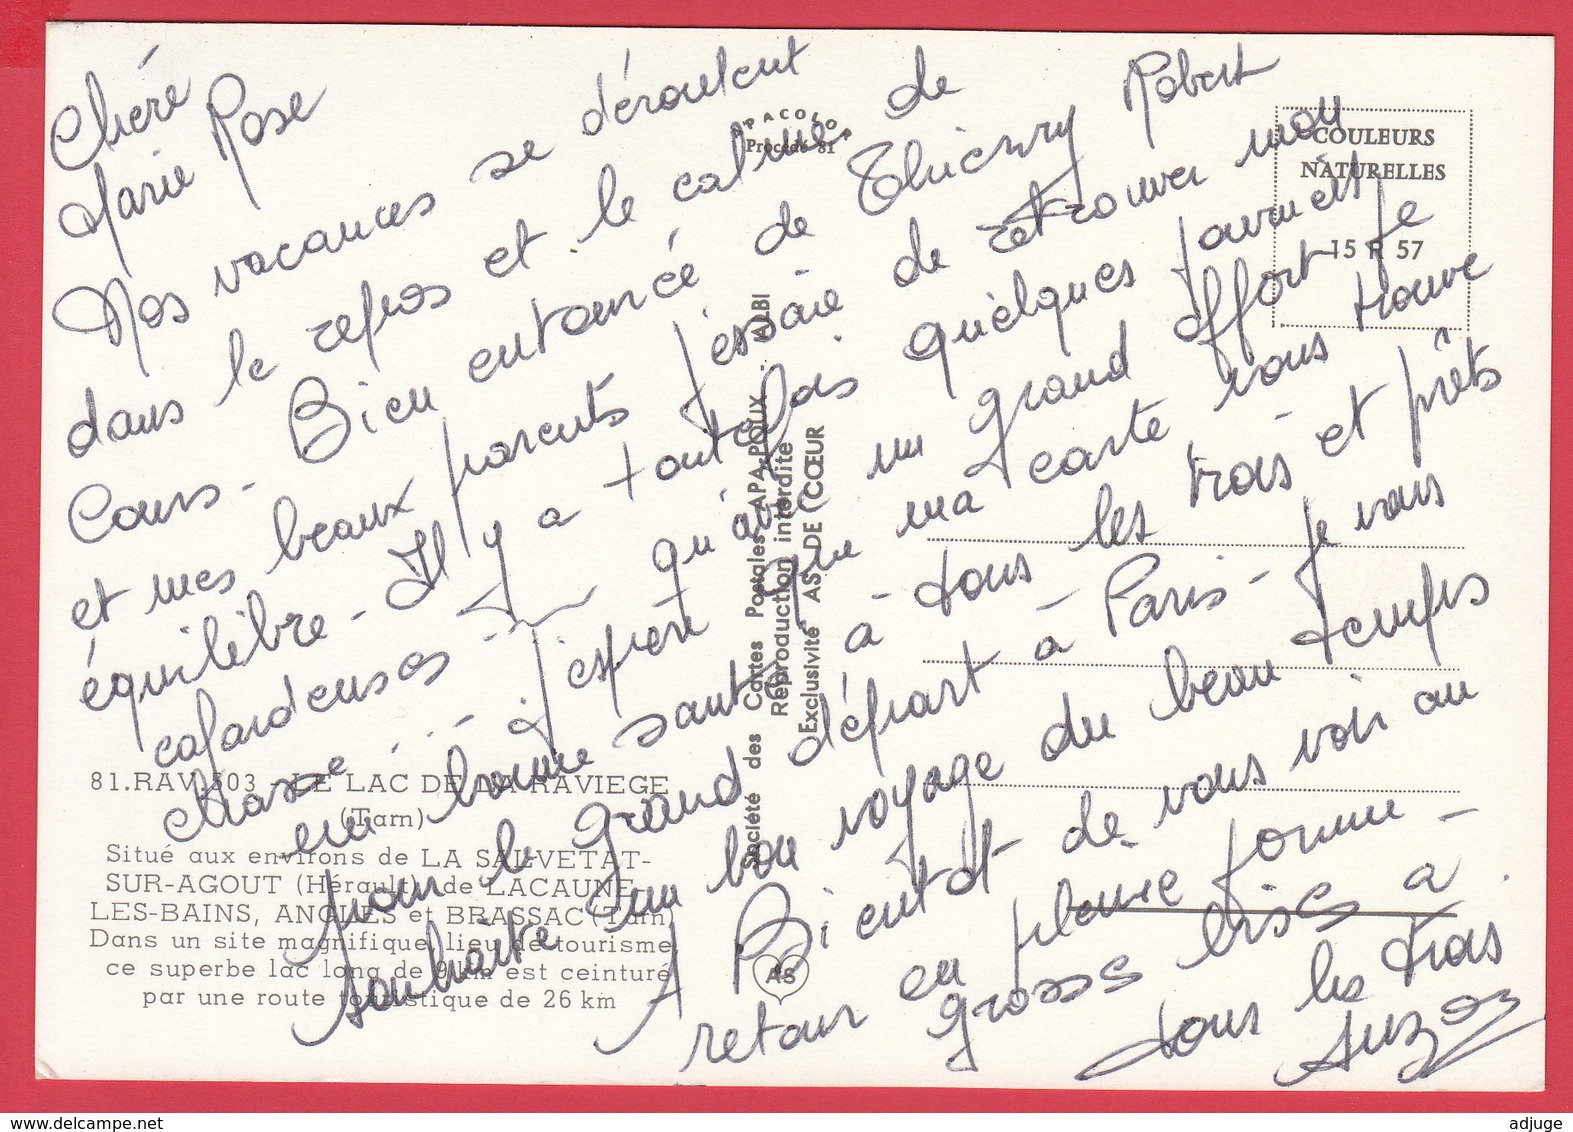 Chère
Marie Rose
Nos vacances se déroulent
dans le repos et le calme de
Cours - Bien entourée de Thierry Robert
et mes beaux parents j'essaie de retrouver mon
équilibre - Il y a toutefois quelques journées
cafardeuses qu'avec un grand effort je
chasse ... j'espère que ma carte vous trouve
en bonne santé à tous les trois et prêts
pour le grand départ à Paris - Je vous
souhaite un bon voyage du beau temps
A Bientôt de vous voir au
retour en pleine forme -
grosses bises à
tous les trois
APACOLOR
Procédé 81
COULEURS
NATURELLES
15 R 57
Société des Cartes Postales APA-POUX - ALBI
Reproduction interdite
Exclusivité AS DE CŒUR
AS
81.RAV.503 - LE LAC DE LA RAVIEGE
(Tarn)
Situé aux environs de LA SALVETAT-
SUR-AGOUT (Hérault), de LACAUNE-
LES-BAINS, ANGLES et BRASSAC (Tarn)
Dans un site magnifique, lieu de tourisme,
ce superbe lac long de 9 km est ceinturé
par une route touristique de 26 km
adjuge - www.delcampe.net